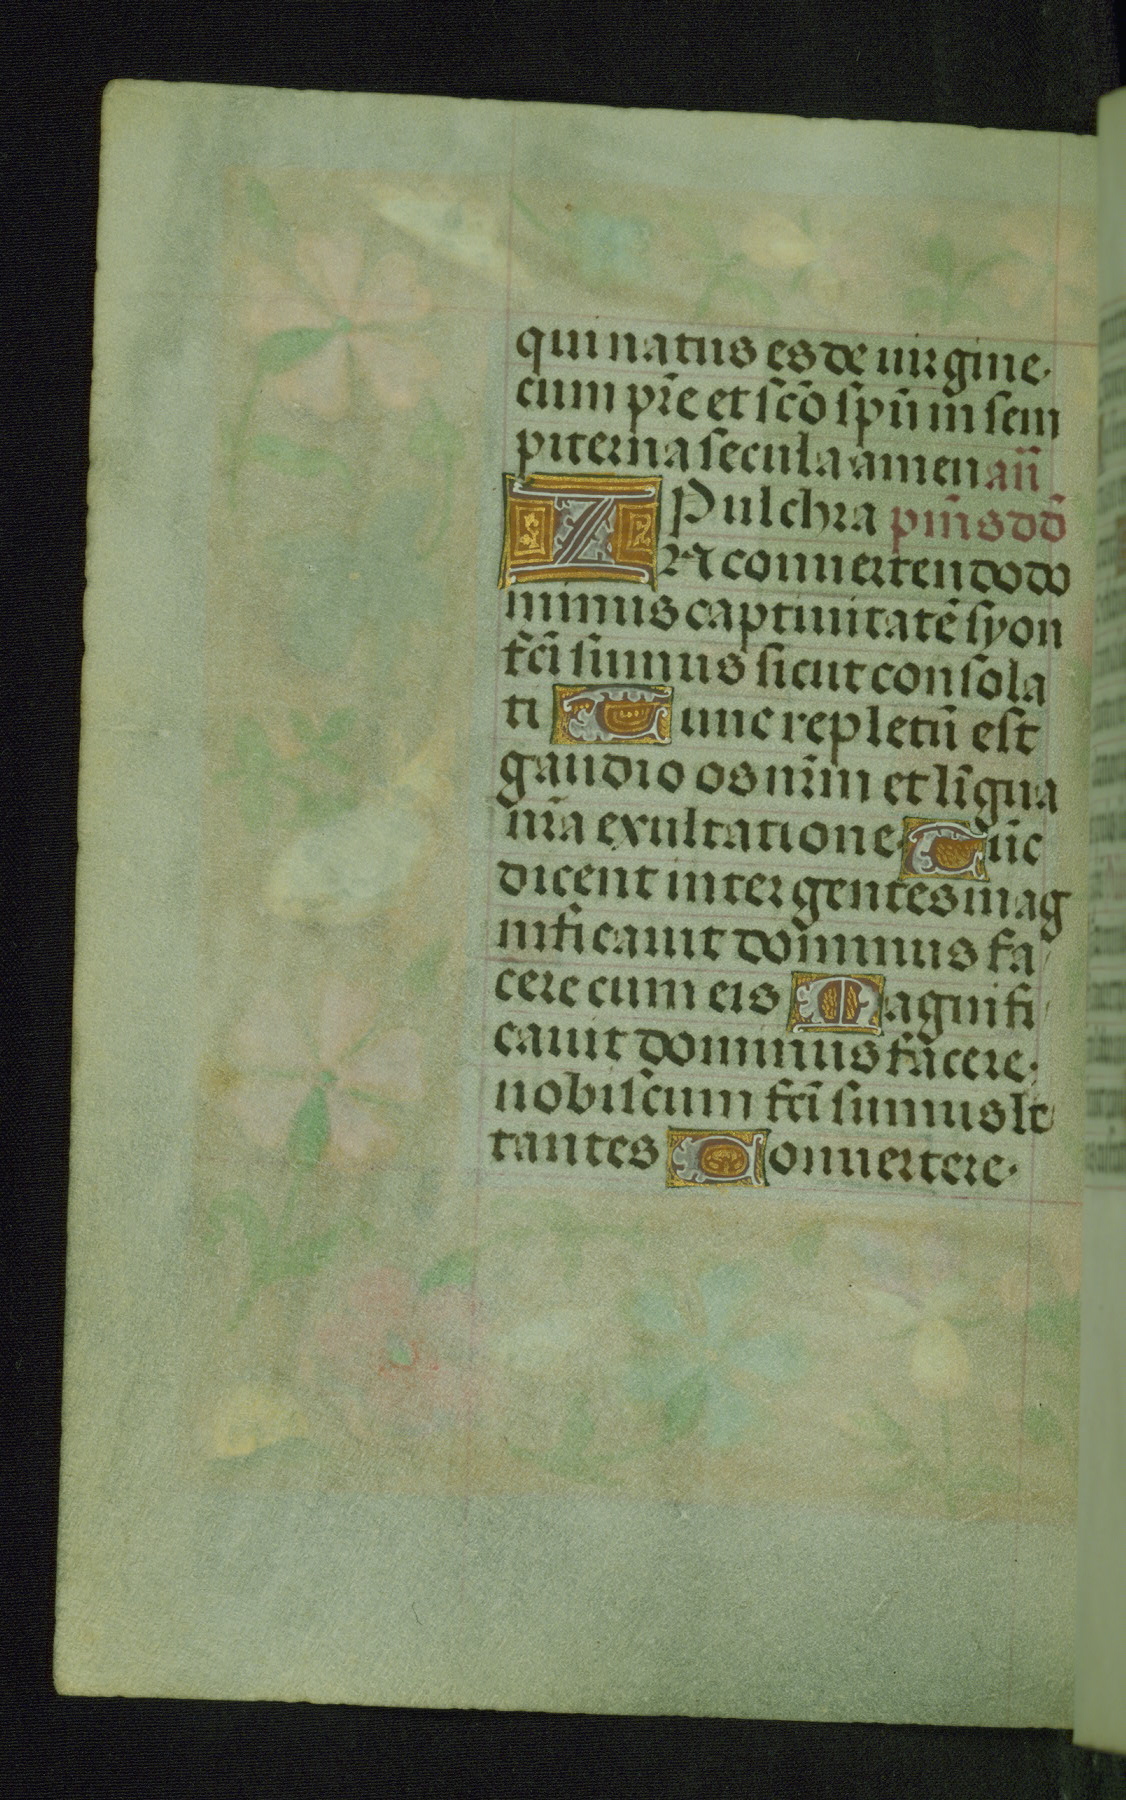 qui natus es de uirgine.
cum pr̄e et sc̄o sp̄u in sem
piterna secula amen an̄
Pulchra ps̄ dd̄
IN conuertendo do
minus captiuitatē syon
fc̄i sumus sicut consola
ti Tunc repletū est
gaudio os nr̄m et līgua
nr̄a exultatione. Tūc
dicent inter gentes mag
nificauit dominus fa
cere cum eis Magnifi
cauit dominus facere.
nobiscum fc̄i sumus le
tantes Conuertere.